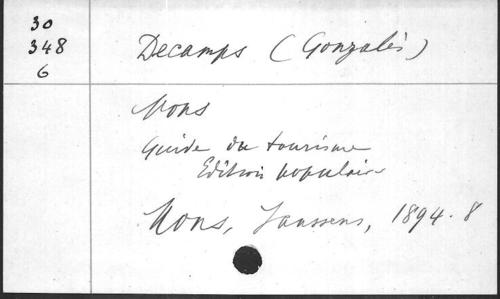 30
348
6
Decamps (Gonzalès)
Mons
Guide du tourisme
Edition populaire
Mons, Janssens, 1894. 8